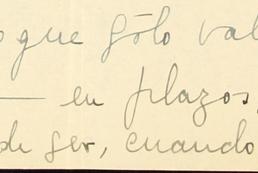 que sólo val
— en plazos,
de ser, cuando